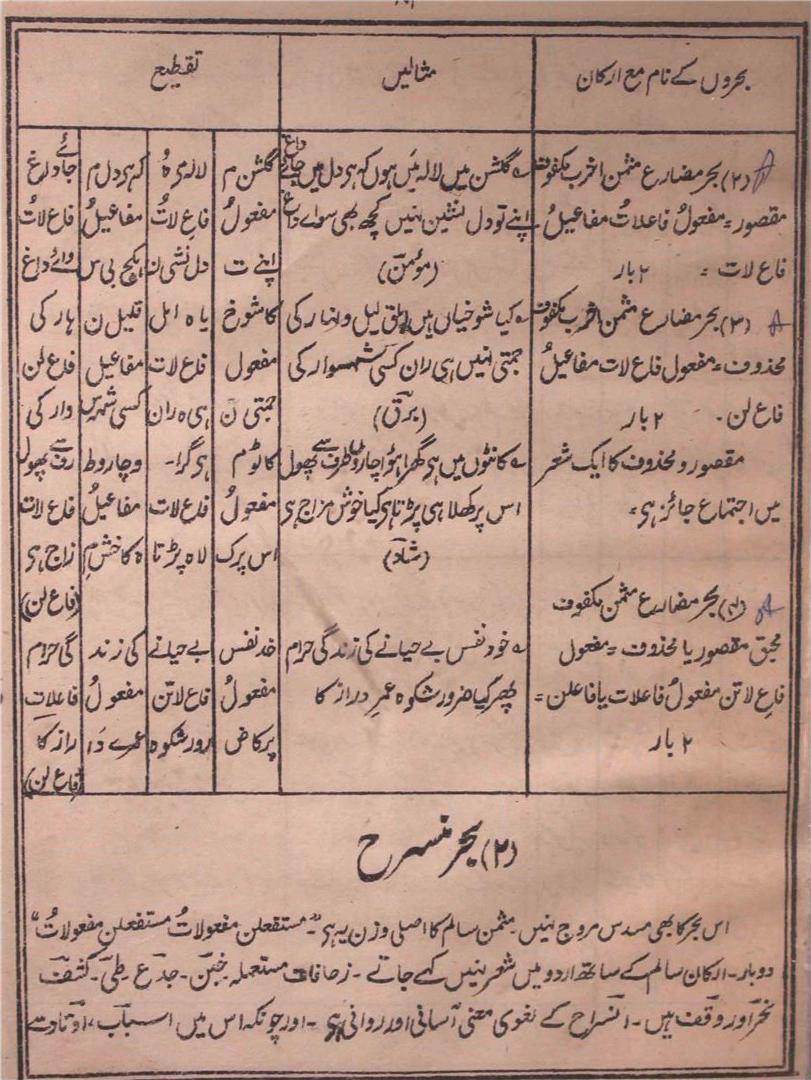 بحروں کے نام مع ارکان
مثالیں
تقطیع
(۲) بحر مضارع مثمن اخرب مکفوف
مقصور = مفعولُ فاعلاتُ مفاعیلُ
فاع لات = ۲ بار
گلشن میں لالہ میں ہوں کہ ہر دل میں جائے داغ
اپنے تو دل نشین نہیں کچھ بھی سواے داغ
(مومن)
گلشن م لالہ مَ ہُ کہ ہر دل م جائے داغ
مفعولُ فاعِ لاتُ مفاعیلُ فاع لاتُ
اپنے ت دل نشی ن ہکچ بی س وائے داغ
(۳) بحر مضارع مثمن اخرب مکفوف
محذوف = مفعول فاع لات مفاعیلُ
فاع لن۔ ۲ بار
کیا شوخیاں ہیں ابلق لیل و نہار کی
جمتی نہیں ہی ران کسی شہسوار کی
(برق)
کا شوخ یا ہ ابل ق لیل ن ہار کی
مفعول فاع لات مفاعیل فاع لن
جمتی ن ہی ہ ران کسی شہس وار کی
مقصور و محذوف کا ایک شعر
میں اجتماع جائز ہی =
کانٹوں میں ہر گھرا ہوا چاروں طرف سے پھول
اس پر کھلا ہی پڑتا ہر کیا خوش مزاج ہی
(شاد)
کا ٹو م ہر گرا۔ و چار و ط رف سے پھول
مفعولُ فاع لات مفاعیلُ فاع لات
اس پر ک لا ہ پڑتا ہ کا خش م زاج ہی
(فاع لن)
(۴) بحر مضارع مثمن مکفوف
محبق مقصور یا محذوف = مفعول
فاعِ لاتن مفعولُ فاعلات یا فاعلن =
۲ بار
خود نفس بے حیانے کی زندگی حرام
پھر کیا ضرور شکوہ عمرِ دراز کا
خد نفس بے حیانے کی زند گی حرام
مفعولُ فاع لاتن مفعولُ فاعلات
پر کا ض رور شکوہ عمرے دَ ا راز کا
(فاع لن)
(۲) بحر منسرح
اس بحر کا بھی مسدس مروج نہیں۔ مثمن سالم کا اصلی وزن یہ ہی "۔ مستفعلن مفعولاتُ مستفعلن مفعولاتُ"
دوبار۔ ارکان سالم کے ساتھ اردو میں شعر نہیں کہے جاتے ۔ زحافات مستعملہ خبن۔ جدع۔ طی۔ کشف
نحر اور وقف ہیں۔ انسراح کے لغوی معنی آسانی اور روانی ہی ۔ اور چونکہ اس میں اسباب، اوتاد سے